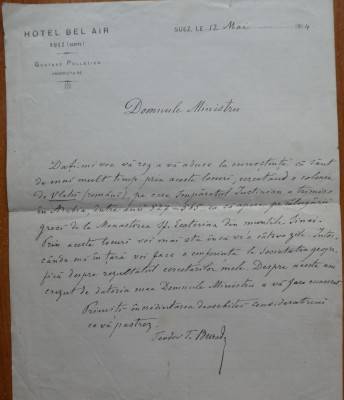 HOTEL BEL AIR
SUEZ (EGYPTE)
GUSTAVE PELLETIER
PROPRIETAIRE
SUEZ, LE 12 Mai 4
Domnule Ministru
Dați-mi voe vă rog a vă aduce la cunoștință că sânt
de mai mult timp prin aceste locuri, cercetând o colonie
de Vlachi (români), pe care Împăratul Justinian a trimis-o
în Arabia, între anii 527-565 ca să apere pe călugării
greci de la Monastirea Sf. Ecaterina din muntele Sinai.
Prin aceste locuri voi mai sta încă vr'o câteva zile. Întor-
cându-mă în țară voi face o conferință la societatea geogra-
fică despre rezultatul cercetărilor mele. Despre aceste am
crezut de datoria mea Domnule Ministru a vă face cunoscut
Primiți încredințarea deosebitei considerațiuni
ce vă păstrez.
Teodor T. Burada